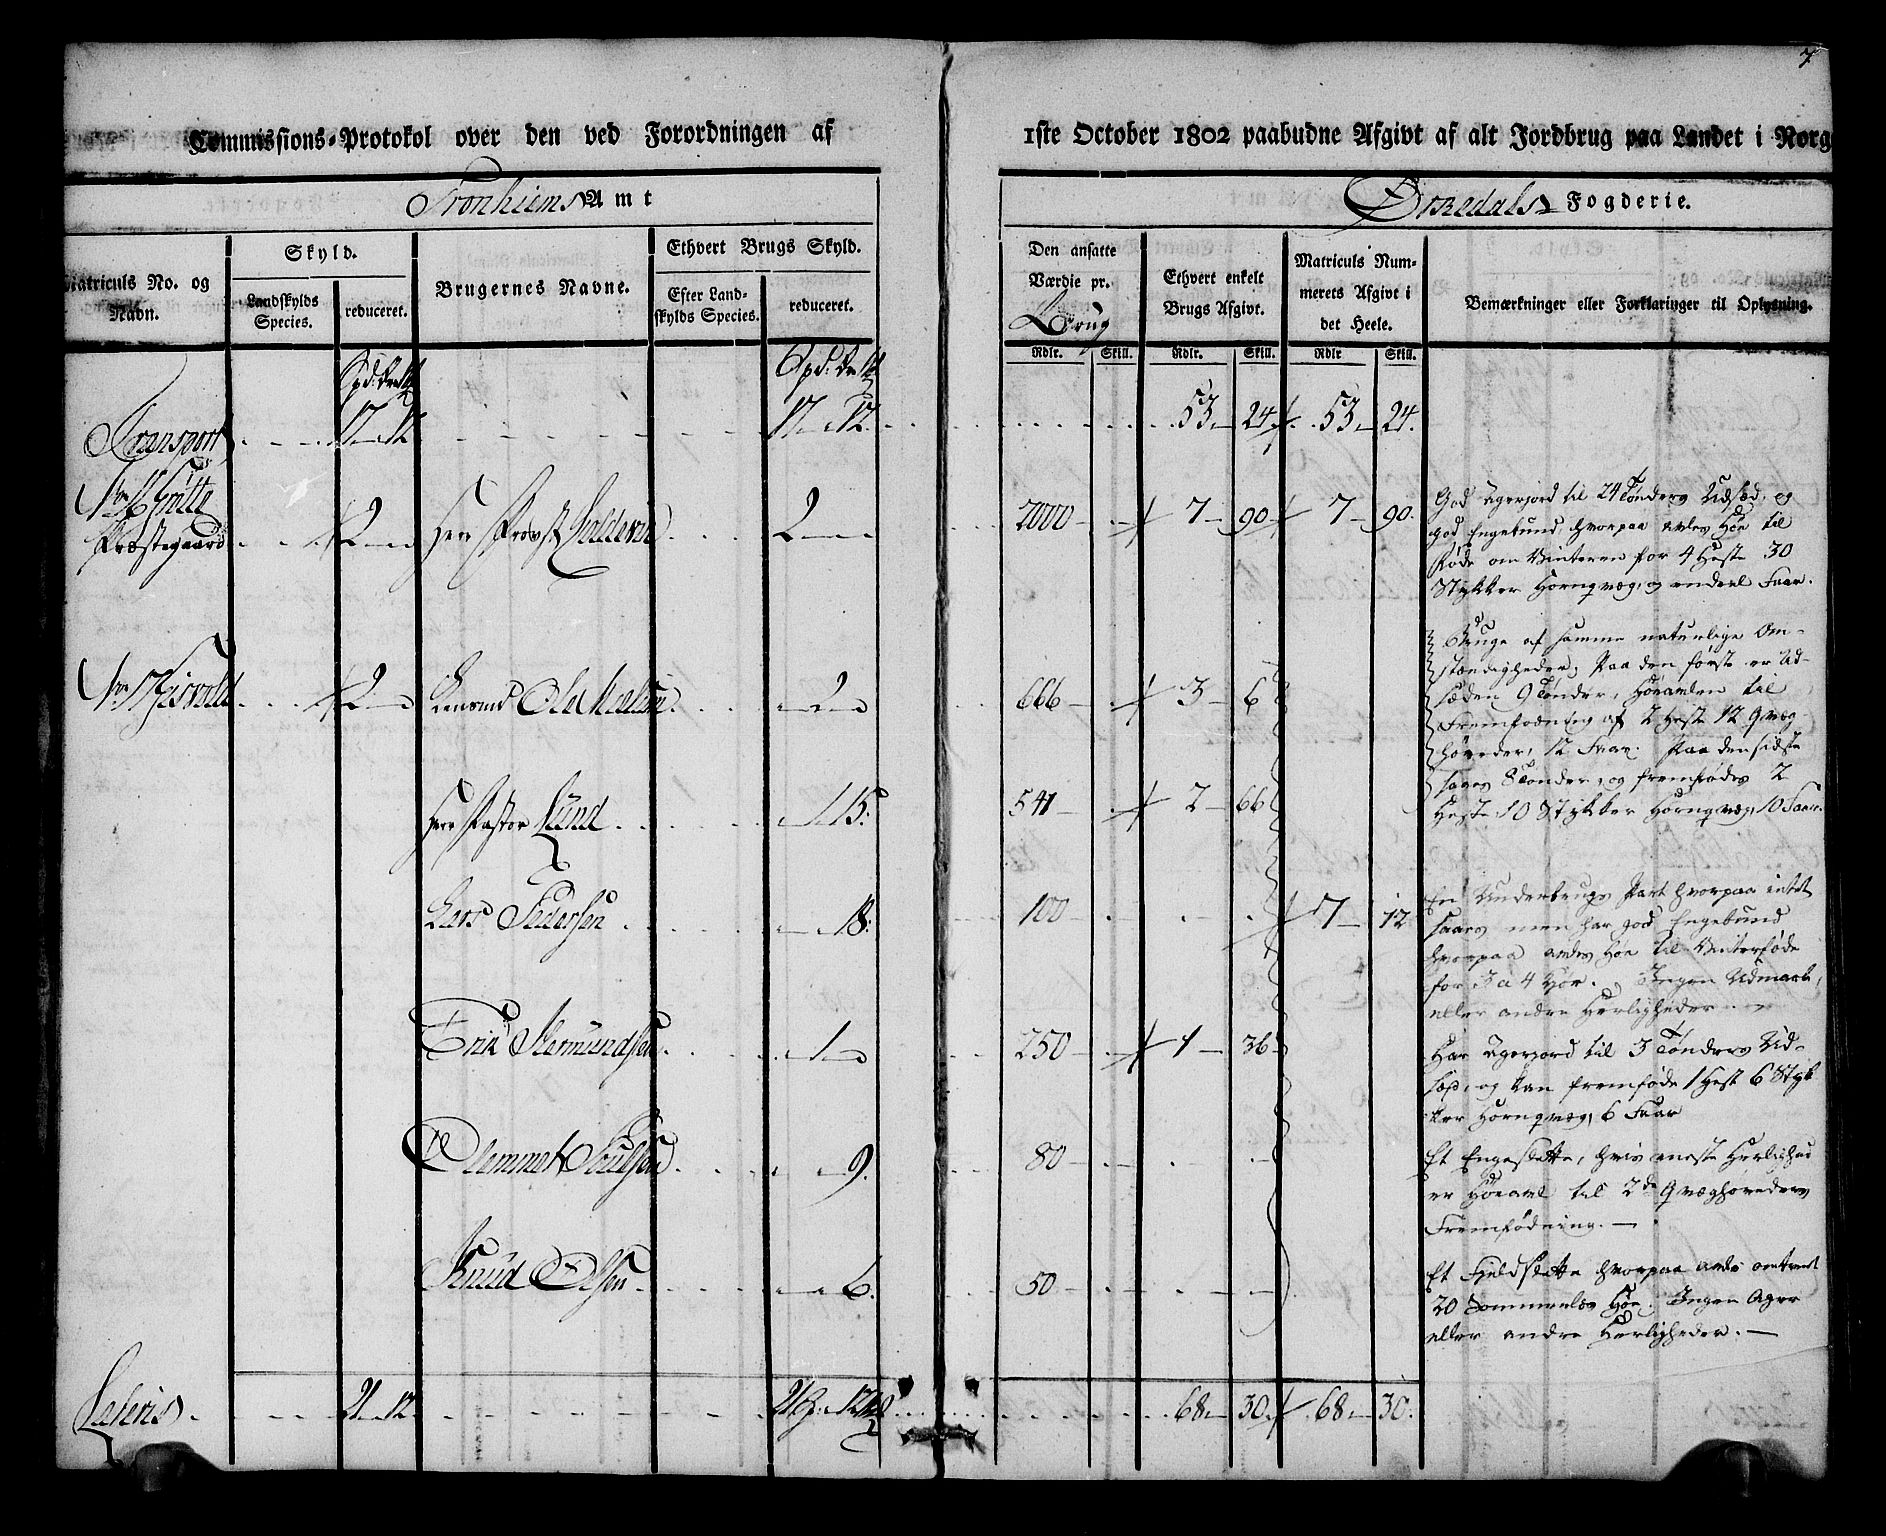 7
Commissions-Protokol over den ved Forordningen af
1ste October 1802 paabudne Afgivt af alt Jordbrug paa Landet i Norg
Tronhiems Amt
Orkedals Fogderie.
Matriculs No. og Navn.
Skyld.
Landskylds Species.
reduceret.
Brugernes Navne.
Ethvert Brugs Skyld.
Efter Landskylds Species.
reduceret.
Den ansatte Værdie pr. Brug
Ethvert enkelt Brugs Afgivt.
Matriculs Nummerets Afgivt i det Heele.
Bemærkninger eller Forklaringer til Oplysning.
Rdlr. Skill. Rdlr. Skill. Rdlr Skill.
Transport 17 12 17 12 53 24 53 24.
Præstegaard 2 Herr Provst 2 2000 7 90 7 90.
God Agerjord til 24 Tønders Udsæd, og
god Engebund hvorpaa avles Høe til
Føde om Vinteren for 4 Heste 30
Stykker Hornqvæg, og endeel Faar.
2 Lensmd Ola 2 666 3 6
Herr Pastor Lund 1 15: 541 2 66
Begge af samme naturlige Om-
stændigheder, Paa den første er Ud-
sæden 9 Tønder, Høeavlen til
Fremfødning af 2 Heste 12 Qvæg-
høveder, 12 Faar. Paa den sidste
saaes 8 Tønder, og fremfødes 2
Heste, 10 Stykker Hornqvæg, 10 Faar.
Lars Pedersen 18: 100 7 12
En Underbrugs Part hvorpaa intet
saaes men har god Engebund
hvorpaa avles Høe til Vinterføde
for 3 a 4 Kør. Ingen Udmark,
eller andre Herligheder
Erik 1 250 1 36
Har Agerjord til 3 Tønders Ud-
sæd, og kan fremføde 1 Hest 6 Styk
ker Hornqvæg, 6 Faar
9. 80
Et Engeslette, hvis meste Herlighed
er Høeavl til 2de Qvæghøveders
Fremfødning.
Knud Olsen 6. 50
Et Fjeldslette hvorpaa avles omtrent
20 Høe. Ingen Ager
eller andre Herligheder.
Lateris 21 12 68 30. 68 30.